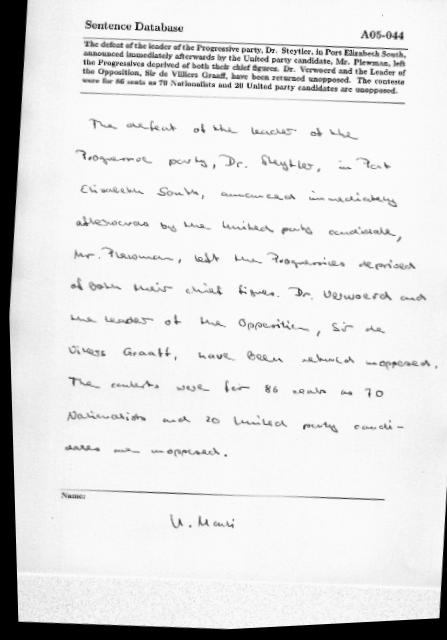 Sentence Database
A05-044
The defeat of the leader of the Progressive party, Dr. Steytler, in Port Elizabeth South,
announced immediately afterwards by the United party candidate, Mr. Plewman, left
the Progressives deprived of both their chief figures. Dr. Verwoerd and the Leader of
the Opposition, Sir de Villiers Graaff, have been returned unopposed. The contests
were for 86 seats as 70 Nationalists and 20 United party candidates are unopposed.
The defeat of the leader of the
Progressive party, Dr. Steytler, in Port
Elizabeth South, announced immediately
afterwards by the United party candidate,
Mr. Plewman, left the Progressives deprived
of both their chief figures. Dr. Verwoerd and
the leader of the Opposition, Sir de
Villiers Graaff, have been returned unopposed.
The contests were for 86 seats as 70
Nationalists and 20 United party candi-
dates are unopposed.
Name:
U.